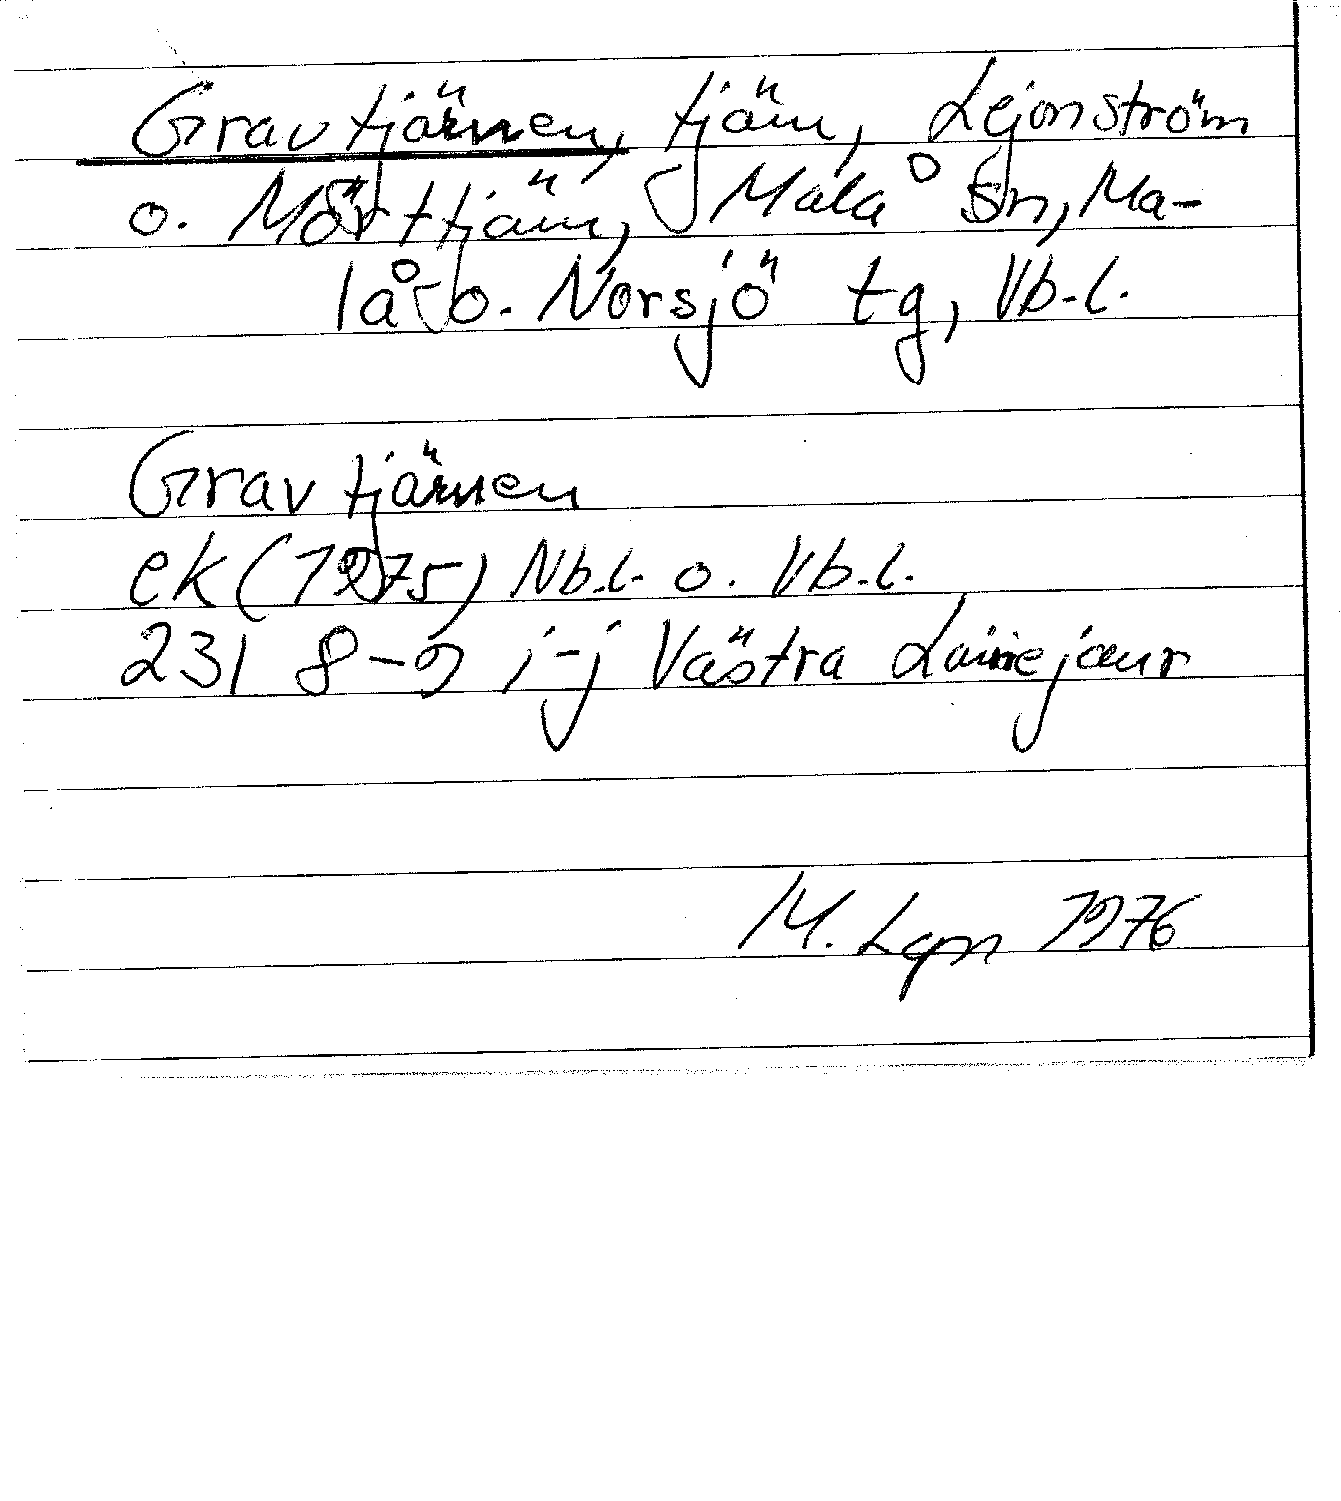 Gravtjärnen, tjärn, Lejonström
o. Mörttjärn, Malå sn, Ma-
lå o. Norsjö tg, Vb.l.
Gravtjärnen
ek (1975) Nb.l. o. Vb.l.
231 8-9 i-j Västra Lainejaur
M. Lgn 1976